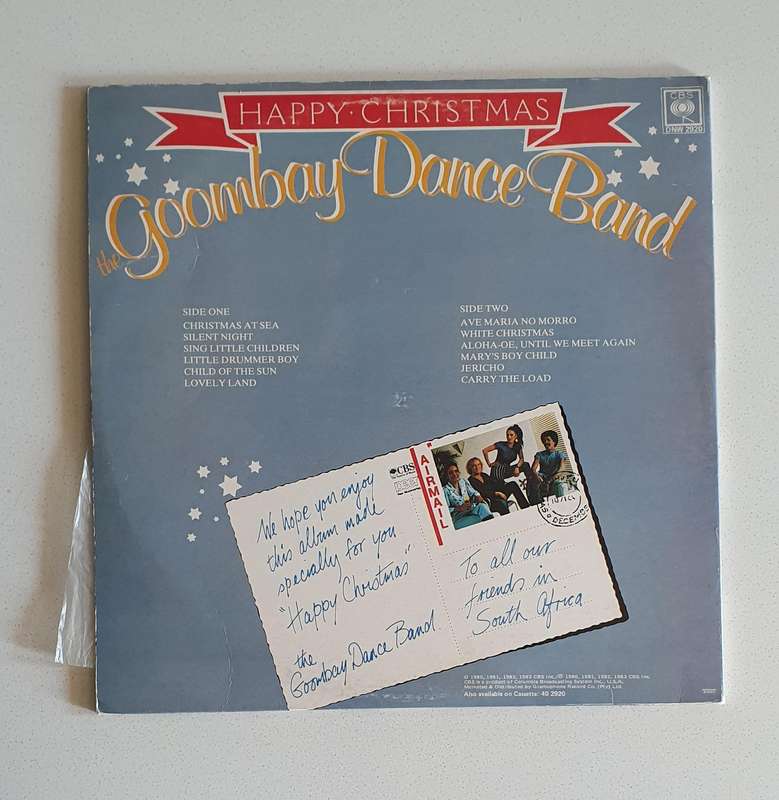 HAPPY·CHRISTMAS
CBS
DNW 2920
the Goombay Dance Band
SIDE ONE
CHRISTMAS AT SEA
SILENT NIGHT
SING LITTLE CHILDREN
LITTLE DRUMMER BOY
CHILD OF THE SUN
LOVELY LAND
SIDE TWO
AVE MARIA NO MORRO
WHITE CHRISTMAS
ALOHA-OE, UNTIL WE MEET AGAIN
MARY'S BOY CHILD
JERICHO
CARRY THE LOAD
We hope you enjoy
this album made
specially for you
"Happy Christmas"
the
Goombay Dance Band
CBS
AIRMAIL
DECEMB
To all our
friends in
South Africa
© 1980, 1981, 1982, 1983 CBS Inc./℗ 1980, 1981, 1982, 1983 CBS Inc.
CBS is a product of Columbia Broadcasting System Inc., U.S.A.
Marketed & Distributed by Gramophone Record Co. (Pty) Ltd.
Also available on Cassette: 40 2920